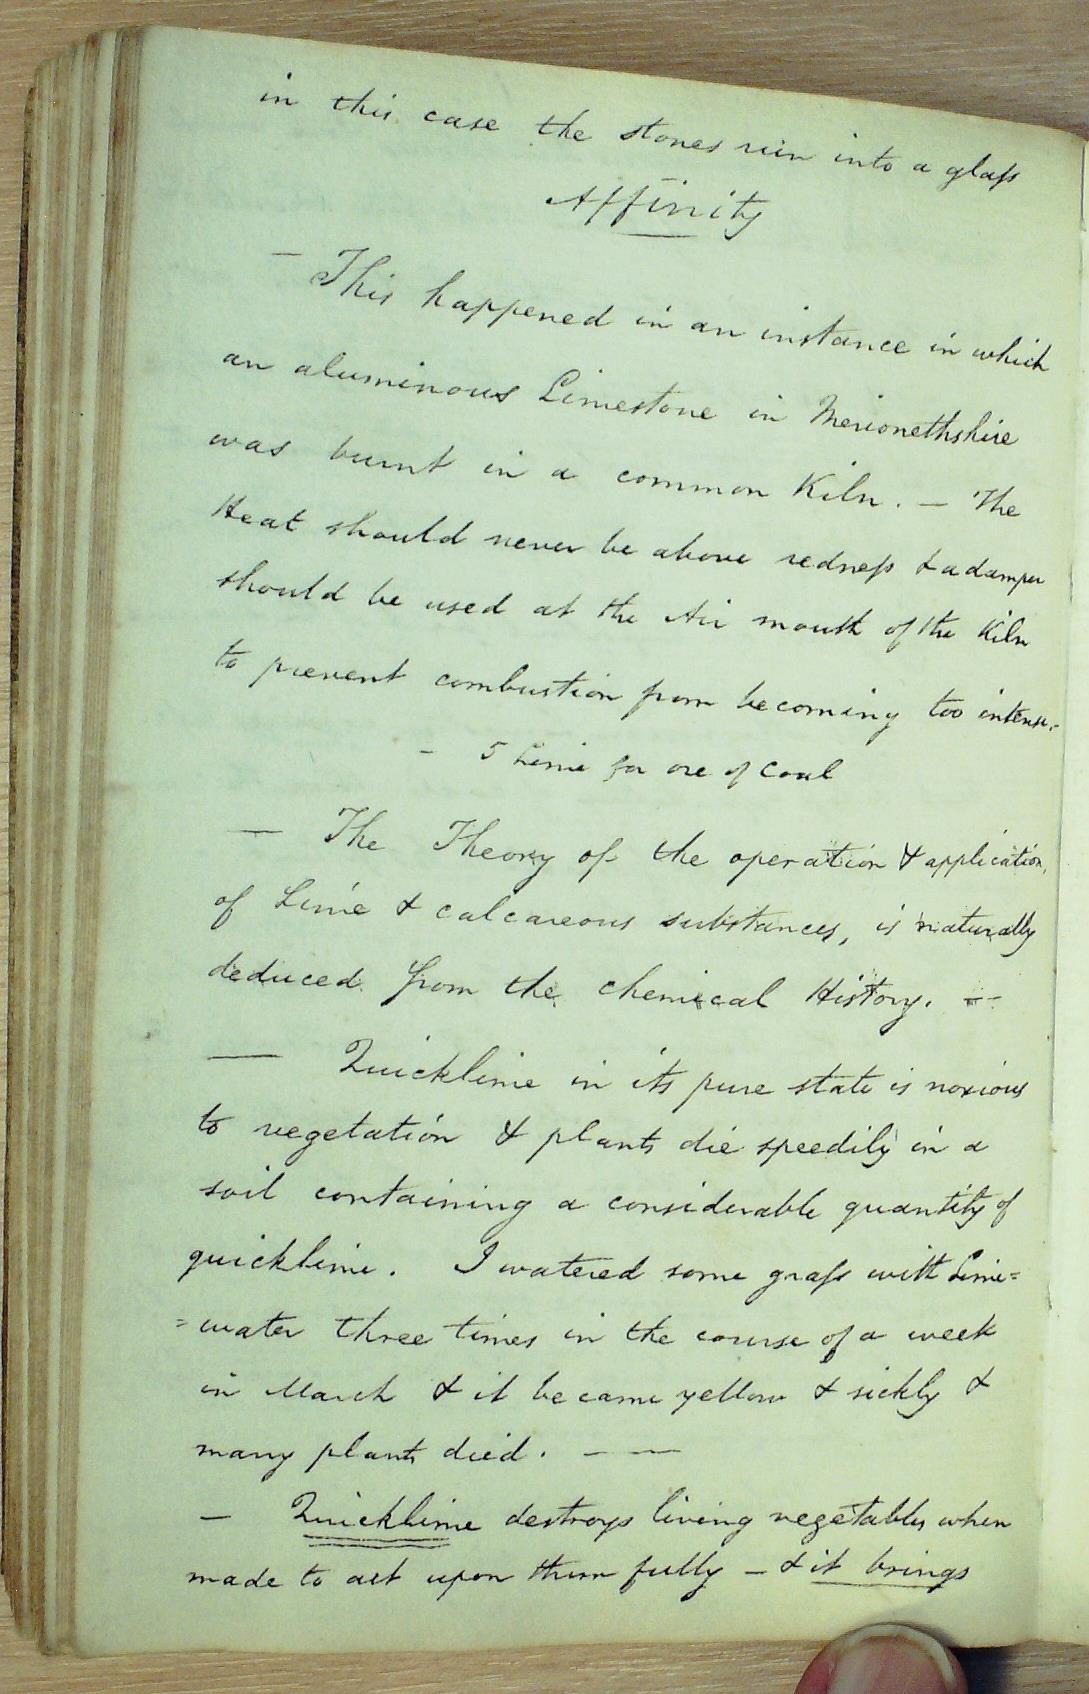 in this case the stones run into a glass
Affinity
— This happened in an instance in which
an aluminous Limestone in Merionethshire
was burnt in a common Kiln. — The
Heat should never be above redness & a damper
should be used at the Air mouth of the Kiln
to prevent combustion from becoming too intense.
– 5 Lime for one of Coal
— The Theory of the operation & application
of Lime & calcareous substances, is naturally
deduced from the chemical History. —
— Quicklime in its pure state is noxious
to vegetation & plants die speedily in a
soil containing a considerable quantity of
quicklime. I watered some grass with Lime=
=water three times in the course of a week
in March & it became yellow & sickly &
many plants died. — —
— Quicklime destroys living vegetables when
made to act upon them fully — & it brings